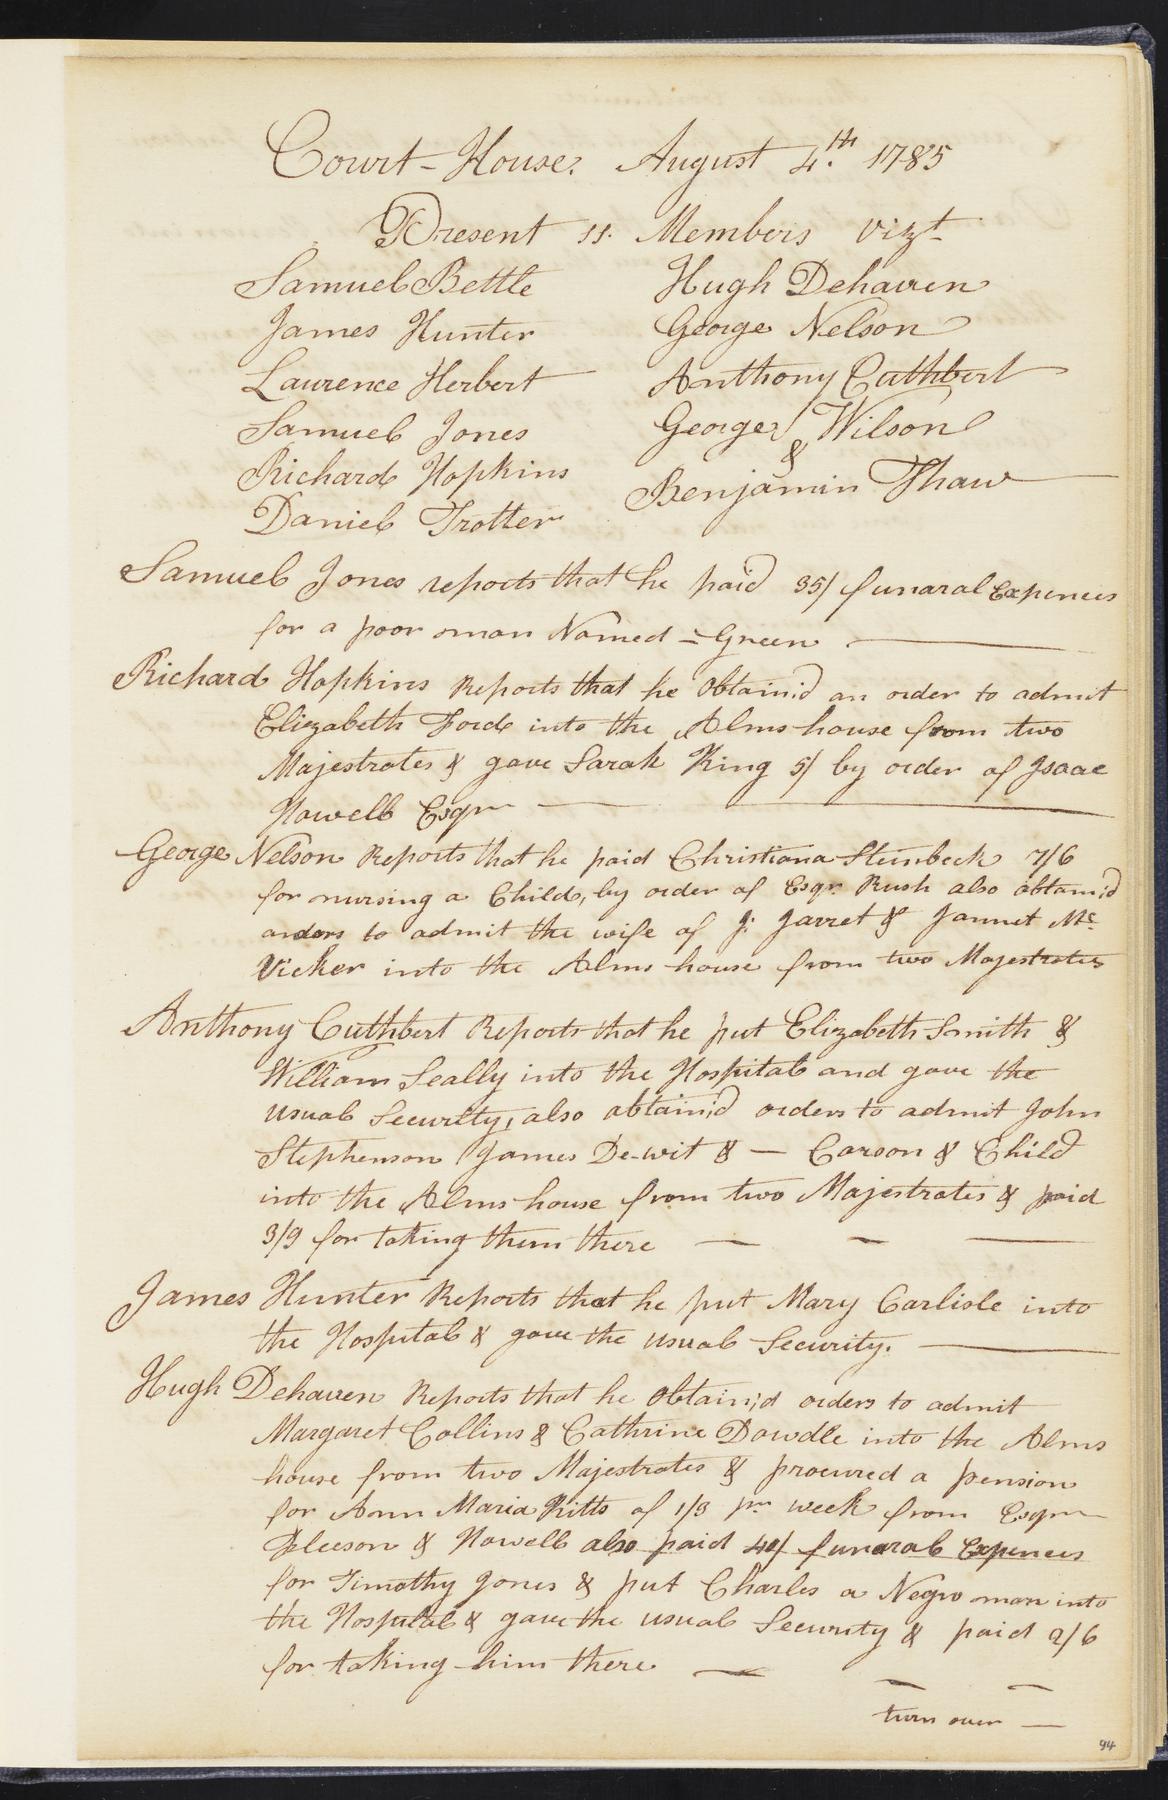 Court-House. August 4.th 1785
Present 11. Members vizt
Samuel Bettle
James Hunter
Laurence Herbert
Samuel Jones
Richard Hopkins
Daniel Trotter
Hugh Dehaven
George Nelson
Anthony Cuthbert
George Wilson
&
Benjamin Thaw
Samuel Jones reports that he paid 35/ funaral Expences
for a poor man Named - Green
Richard Hopkins Reports that he Obtain'd an order to admit
Elizabeth Ford into the Alms house from two
Majestrates & gave Sarah King 5/ by order of Isaac
Howell Esqr
George Nelson Reports that he paid Christiana Steinbeck 7/6
for nursing a Child, by order of Esqr. Rush also obtain'd
orders to admit the wife of J: Jarret & Jannet Mc
Vicker into the Alms house from two Majestrates
Anthony Cuthbert Reports that he put Elizabeth Smith &
William Seally into the Hospital and gave the
usual Security, also obtain'd orders to admit John
Stephenson James De-wit & — Carson & Child
into the Alms house from two Majestrates & paid
3/9 for taking them there
James Hunter Reports that he put Mary Carlisle into
the Hospital & gave the usual Security.
Hugh Dehaven Reports that he Obtain'd orders to admit
Margaret Collins & Cathrine Dowdle into the Alms
house from two Majestrates & procured a pension
for Ann Maria Kitts of 1/3 pr week from Esqr
Pleeson & Howell also paid 40/ funaral Expences
for Timothy Jones & put Charles a Negro man into
the Hospital & gave the usual Security & paid 2/6
for taking him there
turn over
94